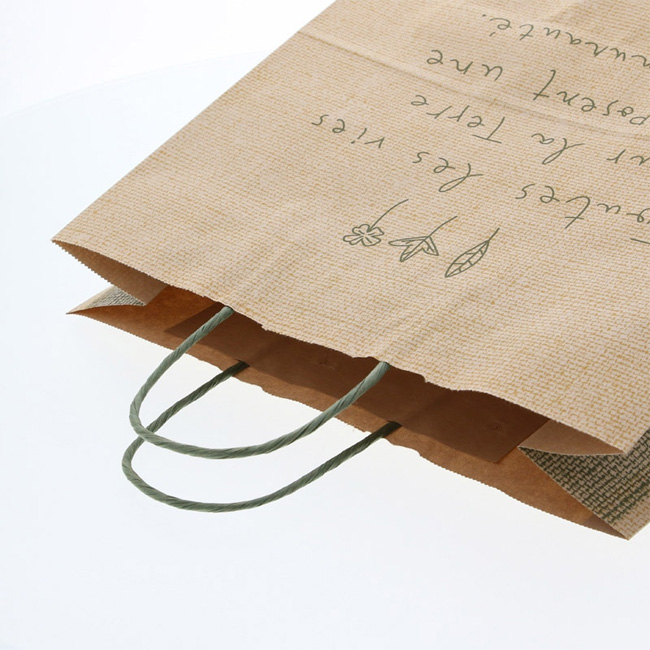 Toutes les vies
ur la Terre
posent une
munauté.